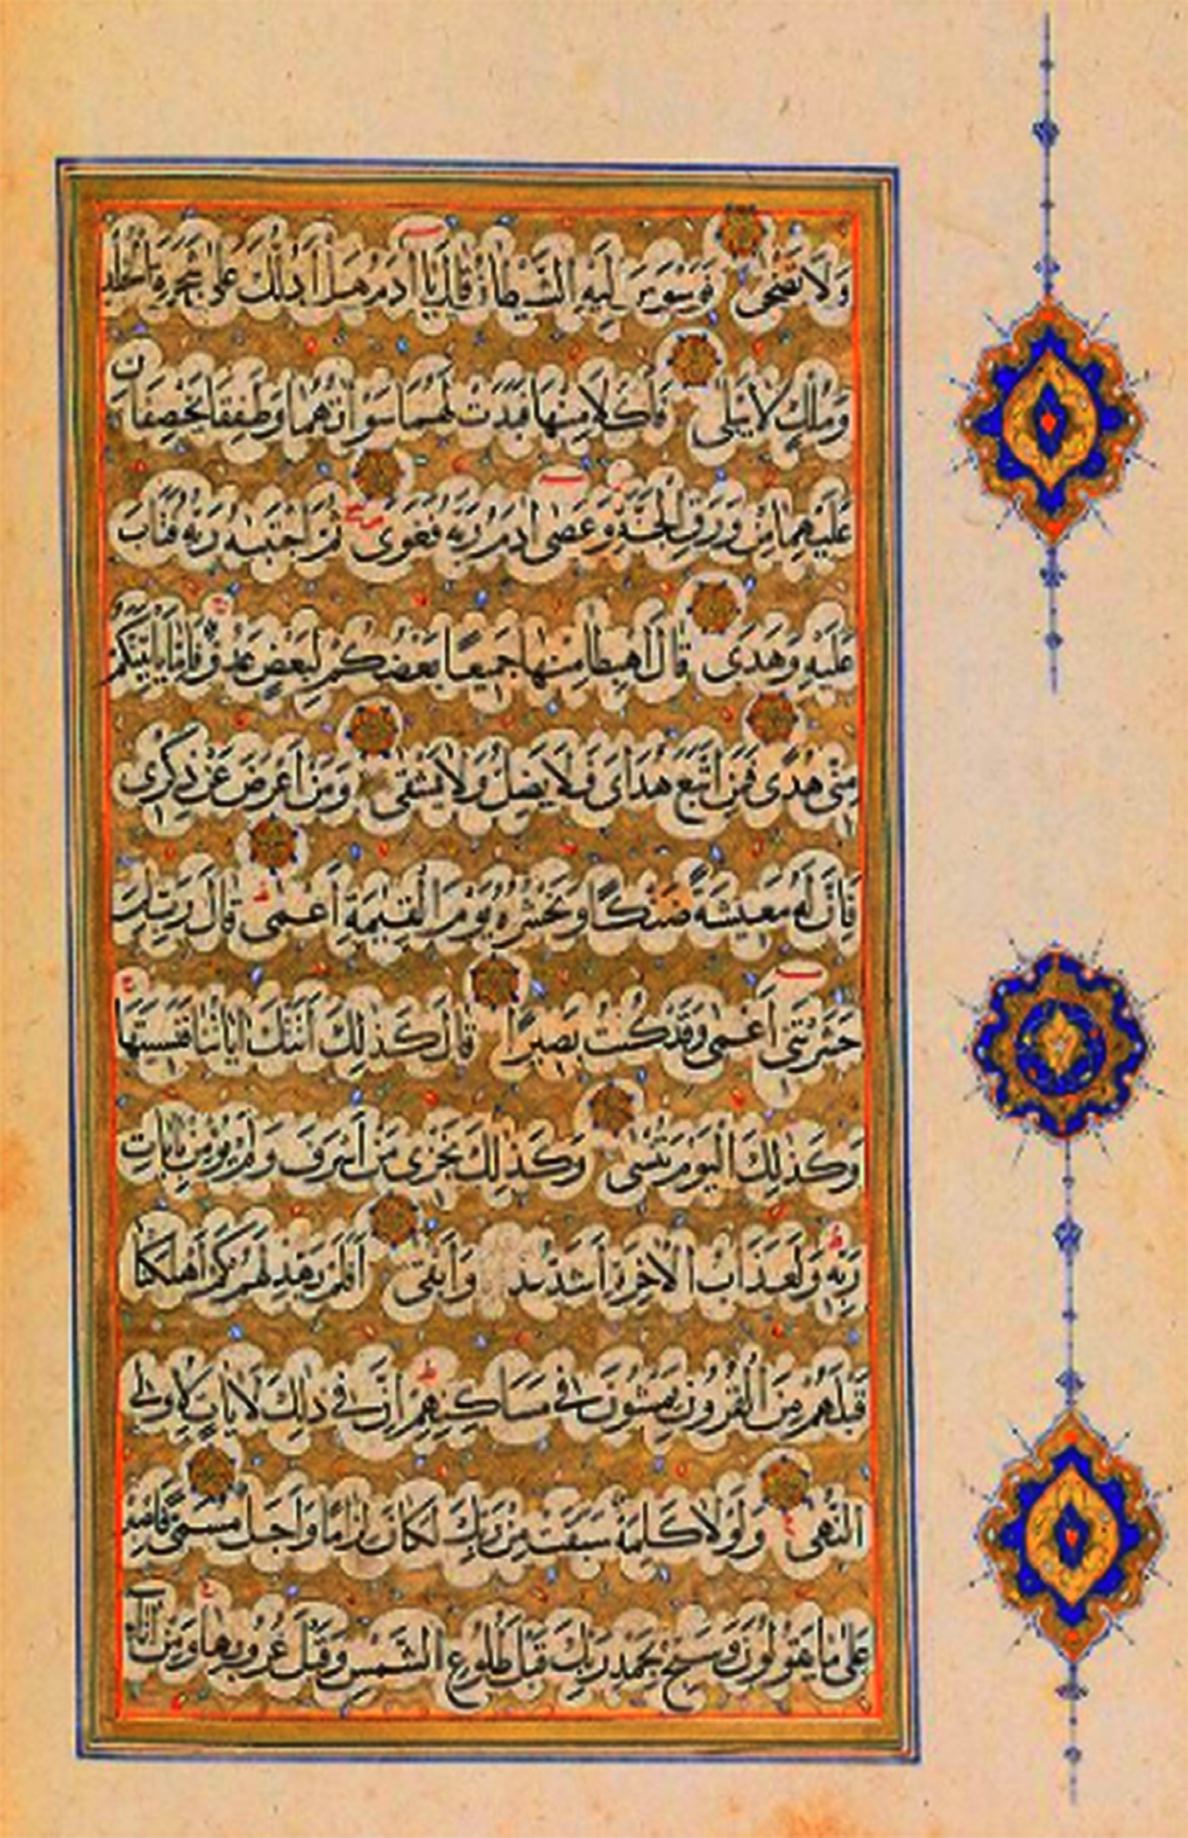 وَلَا تَضْحَى فَوَسْوَسَ إِلَيْهِ الشَّيْطَانُ قَالَ يَا آدَمُ هَلْ أَدُلُّكَ عَلَى شَجَرَةِ الْخُلْدِ
وَمُلْكٍ لَا يَبْلَى فَأَكَلَا مِنْهَا فَبَدَتْ لَهُمَا سَوْآتُهُمَا وَطَفِقَا يَخْصِفَانِ
عَلَيْهِمَا مِنْ وَرَقِ الْجَنَّةِ وَعَصَى آدَمُ رَبَّهُ فَغَوَى ثُمَّ اجْتَبَيهُ رَبُّهُ فَتَابَ
عَلَيْهِ وَهَدَى قَالَ اهْبِطَا مِنْهَا جَمِيعًا بَعْضُكُمْ لِبَعْضٍ عَدُوٌّ فَإِمَّا يَأْتِيَنَّكُمْ
مِنِّي هُدًى فَمَنِ اتَّبَعَ هُدَايَ فَلَا يَضِلُّ وَلَا يَشْقَى وَمَنْ أَعْرَضَ عَنْ ذِكْرِي
فَإِنَّ لَهُ مَعِيشَةً ضَنْكًا وَنَحْشُرُهُ يَوْمَ الْقِيمَةِ أَعْمَى قَالَ رَبِّ لِمَ
حَشَرْتَنِي أَعْمَى وَقَدْ كُنْتُ بَصِيرًا قَالَ كَذَلِكَ أَتَتْكَ آيَاتُنَا فَنَسِيتَهَا
وَكَذَلِكَ الْيَوْمَ تُنْسَى وَكَذَلِكَ نَجْزِي مَنْ أَسْرَفَ وَلَمْ يُؤْمِنْ بِآيَاتِ
رَبِّهِ وَلَعَذَابُ الْآخِرَةِ أَشَدُّ وَأَبْقَى أَفَلَمْ يَهْدِ لَهُمْ كَمْ أَهْلَكْنَا
قَبْلَهُمْ مِنَ الْقُرُونِ يَمْشُونَ فِي مَسَاكِنِهِمْ إِنَّ فِي ذَلِكَ لَآيَاتٍ لِأُولِي
النُّهَى وَلَوْلَا كَلِمَةٌ سَبَقَتْ مِنْ رَبِّكَ لَكَانَ لِزَامًا وَأَجَلٌ مُسَمًّى فَاصْبِرْ
عَلَى مَا يَقُولُونَ وَسَبِّحْ بِحَمْدِ رَبِّكَ قَبْلَ طُلُوعِ الشَّمْسِ وَقَبْلَ غُرُوبِهَا وَمِنْ آنَاءِ